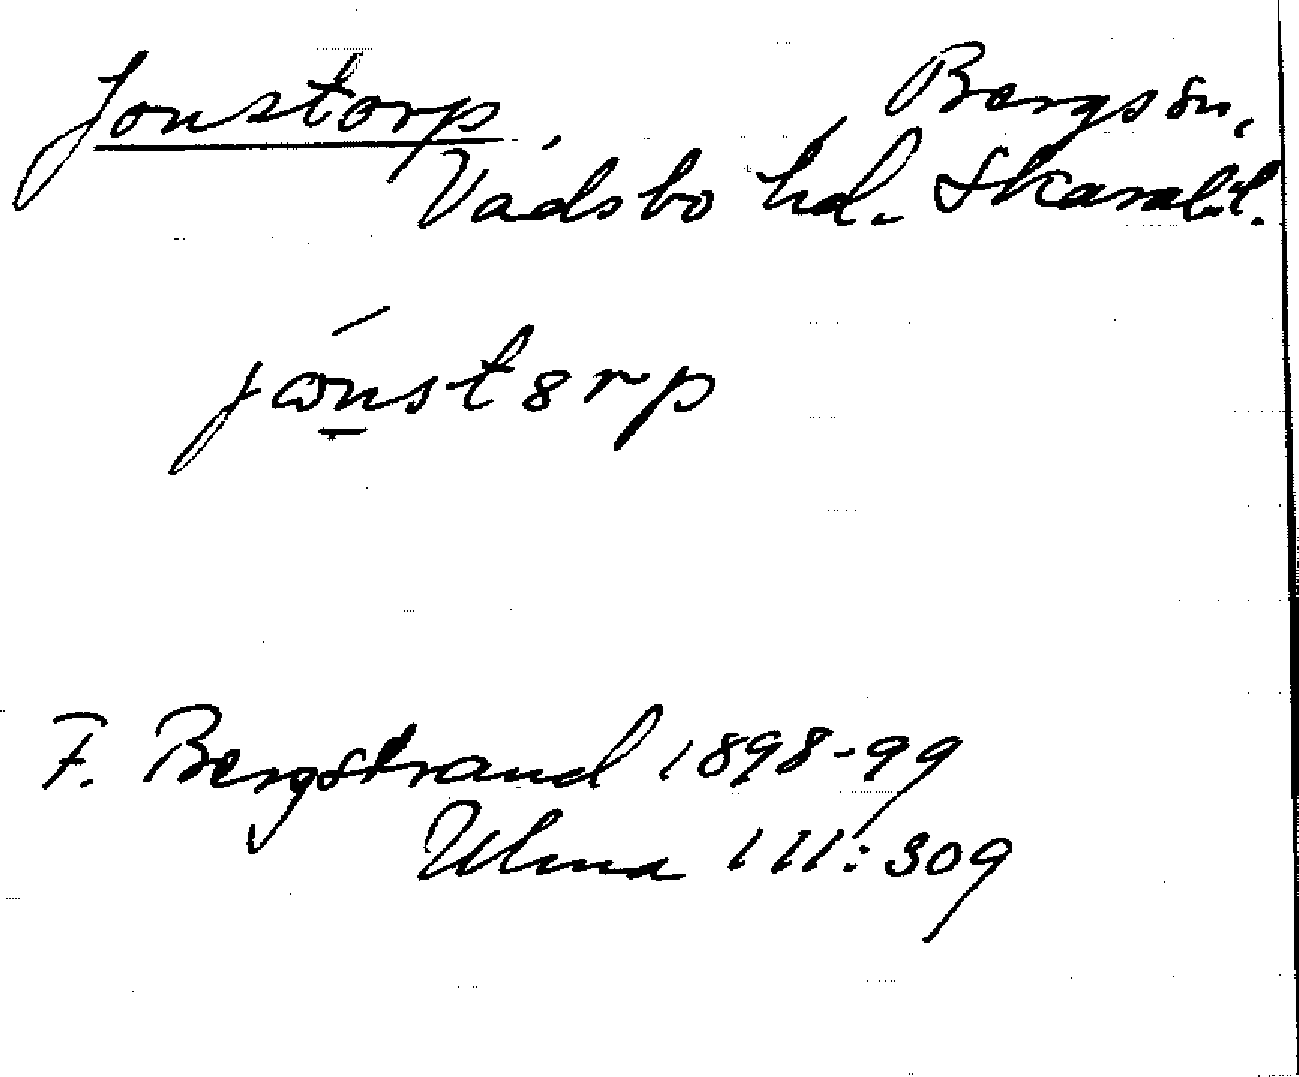 Jonstorp, Bergs sn,
Vadsbo hd. Skarab.l.
jónstorp
F. Bergstrand 1898-99
Ulma 111:309